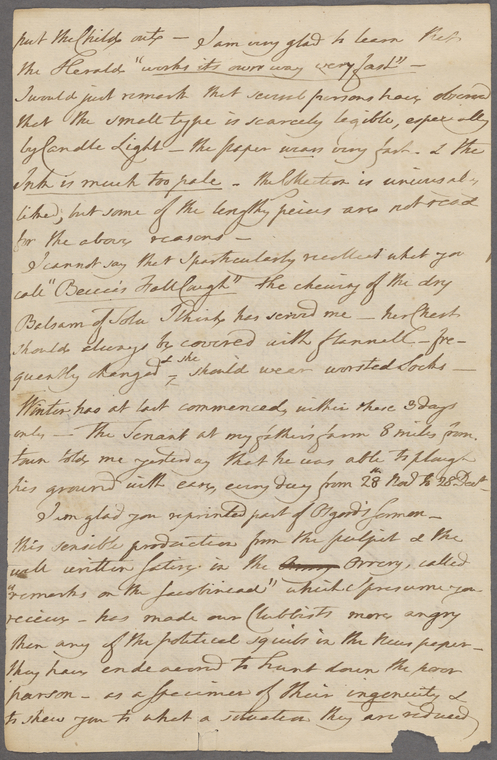 put the Childs outs — I am very glad to learn that
the Herald "works its own way very fast" —
I would just remark that several persons have observed
that the small type is scarcely legible, especially
by Candle Light — the paper wears very fast — & the
Ink is much too pale — the Selection is universally
liked, but some of the lengthy peices are not read
for the above reasons —
I cannot say that I particularly recollect what you
call "Beccas Fall Cough" the chewing of the dry
Balsam of Tolu I think has served me — her Chest
should always be covered with flannell — fre-
quently changed & she should wear worsted Socks —
Winter has at last commenced, within these 3 days
only — The Tenant at my fathers farm 8 miles from
town told me yesterday that he was able to plough
his ground with ease, every day from 28th Novr to 28 Decr —
I am glad you reprinted part of Osgoods Sermon —
this sensible production from the pulpit & the
well written satire in the Orrery, called
"remarks on the Jacobiniad" which I presume you
receive — has made our Clubbists more angry
then any of the political squibs in the News paper —
they have endeavored to hunt down the poor
parson — as a specimen of their ingenuity &
to shew you to what a situation they are reduced